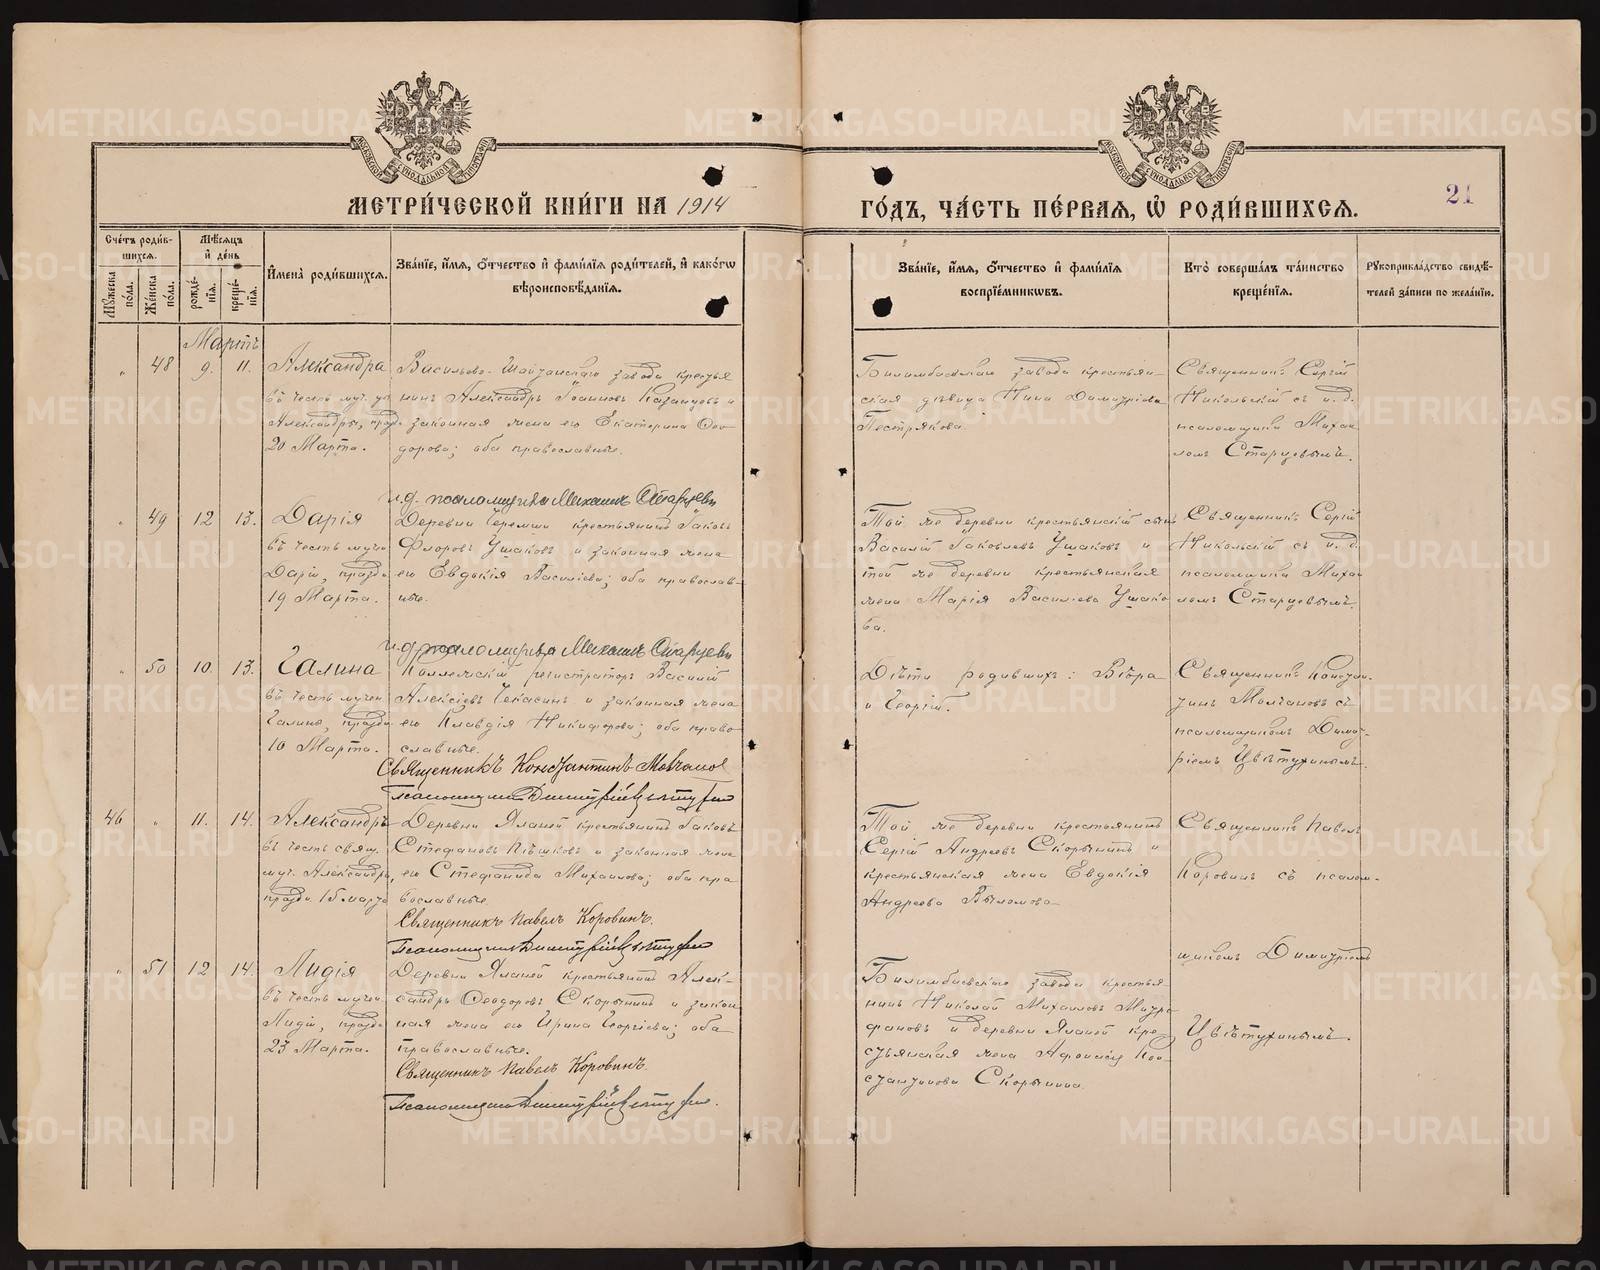 МЕТРИ́ЧЕСКОЙ КНИ́ГИ НА 1914
ГО́ДЪ, ЧА́СТЬ ПЕ́РВАЯ, Ѡ҆ РОДИ́ВШИХСЯ.
21
Сче́тъ роди́в-
шихся.
Мꙋ́жеска по́ла.
Же́нска по́ла.
Мѣ́сяцъ
и҆ де́нь
рожде́-
нїя.
креще́-
нїя.
И҆мена̀ роди́вшихся.
Зва́нїе, и҆́мя, ѻ҆́тчество и҆ фамѝлїя роди́телей, и҆ како́гѡ
вѣроисповѣ́данїя.
Зва́нїе, и҆́мя, ѻ҆́тчество и҆ фамѝлїя
воспрїе́мниковъ.
Кто̀ соверша́лъ та́инство
креще́нїя.
Рꙋкоприкла́дство свидѣ́-
телей за́писи по жела́нїю.
Мартъ
" 48 9. 11.
Александра
въ честь муч.
Александры, празд.
20 Марта.
Васильево-Шайтанскаго завода крестья
нинъ Александръ Іоанновъ Казанцевъ и
законная жена его Екатерина Ѳео-
дорова; оба православные.
и.д. псаломщика Михаилъ Старцевъ
Билимбаевскаго завода крестьян-
ская дѣвица Нина Димитріева
Пестрякова.
Священникъ Сергій
Никольскій съ и. д.
псаломщика Михаи
ломъ Старцевымъ.
" 49 12 13.
Дарія
въ честь мучен.
Даріи, праздн.
19. Марта.
Деревни Черемши крестьянинъ Іаковъ
Флоровъ Ушаковъ и законная жена
его Евдокія Василіева; оба православ-
ные.
и.д. псаломщика Михаилъ Старцевъ
Той же деревни крестьянскій сынъ
Василій Іаковлевъ Ушаковъ и
той же деревни крестьянская
жена Марія Василіева Ушако
ва.
Священникъ Сергій
Никольскій съ и. д.
псаломщика Михаи
ломъ Старцевымъ.
" 50 10. 13.
Галина
въ честь мучен.
Галины, праздн.
10 Марта.
Коллежскій регистраторъ Василій
Алексіевъ Чекасинъ и законная жена
его Клавдія Никифорова; оба право-
славные.
Священникъ Константинъ Молчановъ
Псаломщикъ Димитрій Цвѣтухинъ
Дѣти родившихъ: Вѣра
и Георгій.
Священникъ Констан-
тинъ Молчановъ съ
псаломщикомъ Димит-
ріемъ Цвѣтухинымъ.
46 " 11. 14.
Александръ
въ честь свящ.
муч. Александра,
праздн. 15 марта
Деревни Яланей крестьянинъ Іаковъ
Стефановъ Пѣшковъ и законная жена
его Стефанида Михаилова; оба пра
вославные.
Священникъ Павелъ Коровинъ.
Псаломщикъ Димитрій Цвѣтухинъ
Той же деревни крестьянинъ
Сергій Андреевъ Скорынинъ и
крестьянская жена Евдокія
Андреева
Священникъ Павелъ
Коровинъ съ псалом-
щикомъ Димитріемъ
Цвѣтухинымъ.
" 51 12 14.
Лидія
въ честь мучен.
Лидіи, праздн.
23 Марта.
Деревни Яланей крестьянинъ Алек-
сандръ Ѳеодоровъ Скорынинъ и закон
ная жена его Ирина Георгіева; оба
православные.
Священникъ Павелъ Коровинъ.
Псаломщикъ Димитрій Цвѣтухинъ.
Билимбаевскаго завода крестья
нинъ Николай Михаиловъ Митро
фановъ и деревни Яланей кре-
стьянская жена Афанасія Кон-
стантинова Скорынина.
METRIKI.GASO-URAL.RU